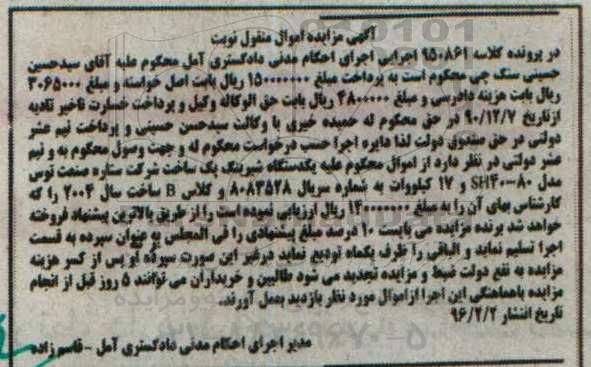 آگهی مزایده اموال منقول نوبت
در پرونده کلاسه ۹۵۰۸۶۱ اجرایی اجرای احکام مدنی دادگستری آمل محکوم علیه آقای سیدحسین
حسینی سنگ چی محکوم است به پرداخت مبلغ ۱۵۰۰۰۰۰۰۰ ریال بابت اصل خواسته و مبلغ ۳۰۶۵۰۰۰
ریال بابت هزینه دادرسی و مبلغ ۴۸۰۰۰۰۰ ریال بابت حق الوکاله وکیل و پرداخت خسارت تاخیر تادیه
ازتاریخ ۹۰/۱۲/۷ در حق محکوم له حمیده خیری با وکالت سیدحسن حسینی و پرداخت نیم عشر
دولتی در حق صندوق دولت لذا دایره اجرا حسب درخواست محکوم له و جهت وصول محکوم به و نیم
عشر دولتی در نظر دارد از اموال محکوم علیه یکدستگاه شیرینک پک ساخت شرکت ستاره صنعت توس
مدل SH۴۰-۸۰ و ۱۷ کیلووات به شماره سریال ۸۰۸۳۵۲۸ و کلاس B ساخت سال ۲۰۰۴ را که
کارشناس بهای آن را به مبلغ ۱۴۰۰۰۰۰۰۰ ریال ارزیابی نموده است را از طریق بالاترین پیشنهاد فروخته
خواهد شد برنده مزایده می بایست ۱۰ درصد مبلغ پیشنهادی را فی المجلس به عنوان سپرده به قسمت
اجرا تسلیم نماید و الباقی را ظرف یکماه تودیع نماید درغیر این صورت سپرده او پس از کسر هزینه
مزایده به نفع دولت ضبط و مزایده تجدید می شود طالبین و خریداران می توانند ۵ روز قبل از انجام
مزایده باهماهنگی این اجرا ازاموال مورد نظر بازدید بعمل آورند.
تاریخ انتشار ۹۶/۲/۲
مدیر اجرای احکام مدنی دادگستری آمل - قاسم زاده